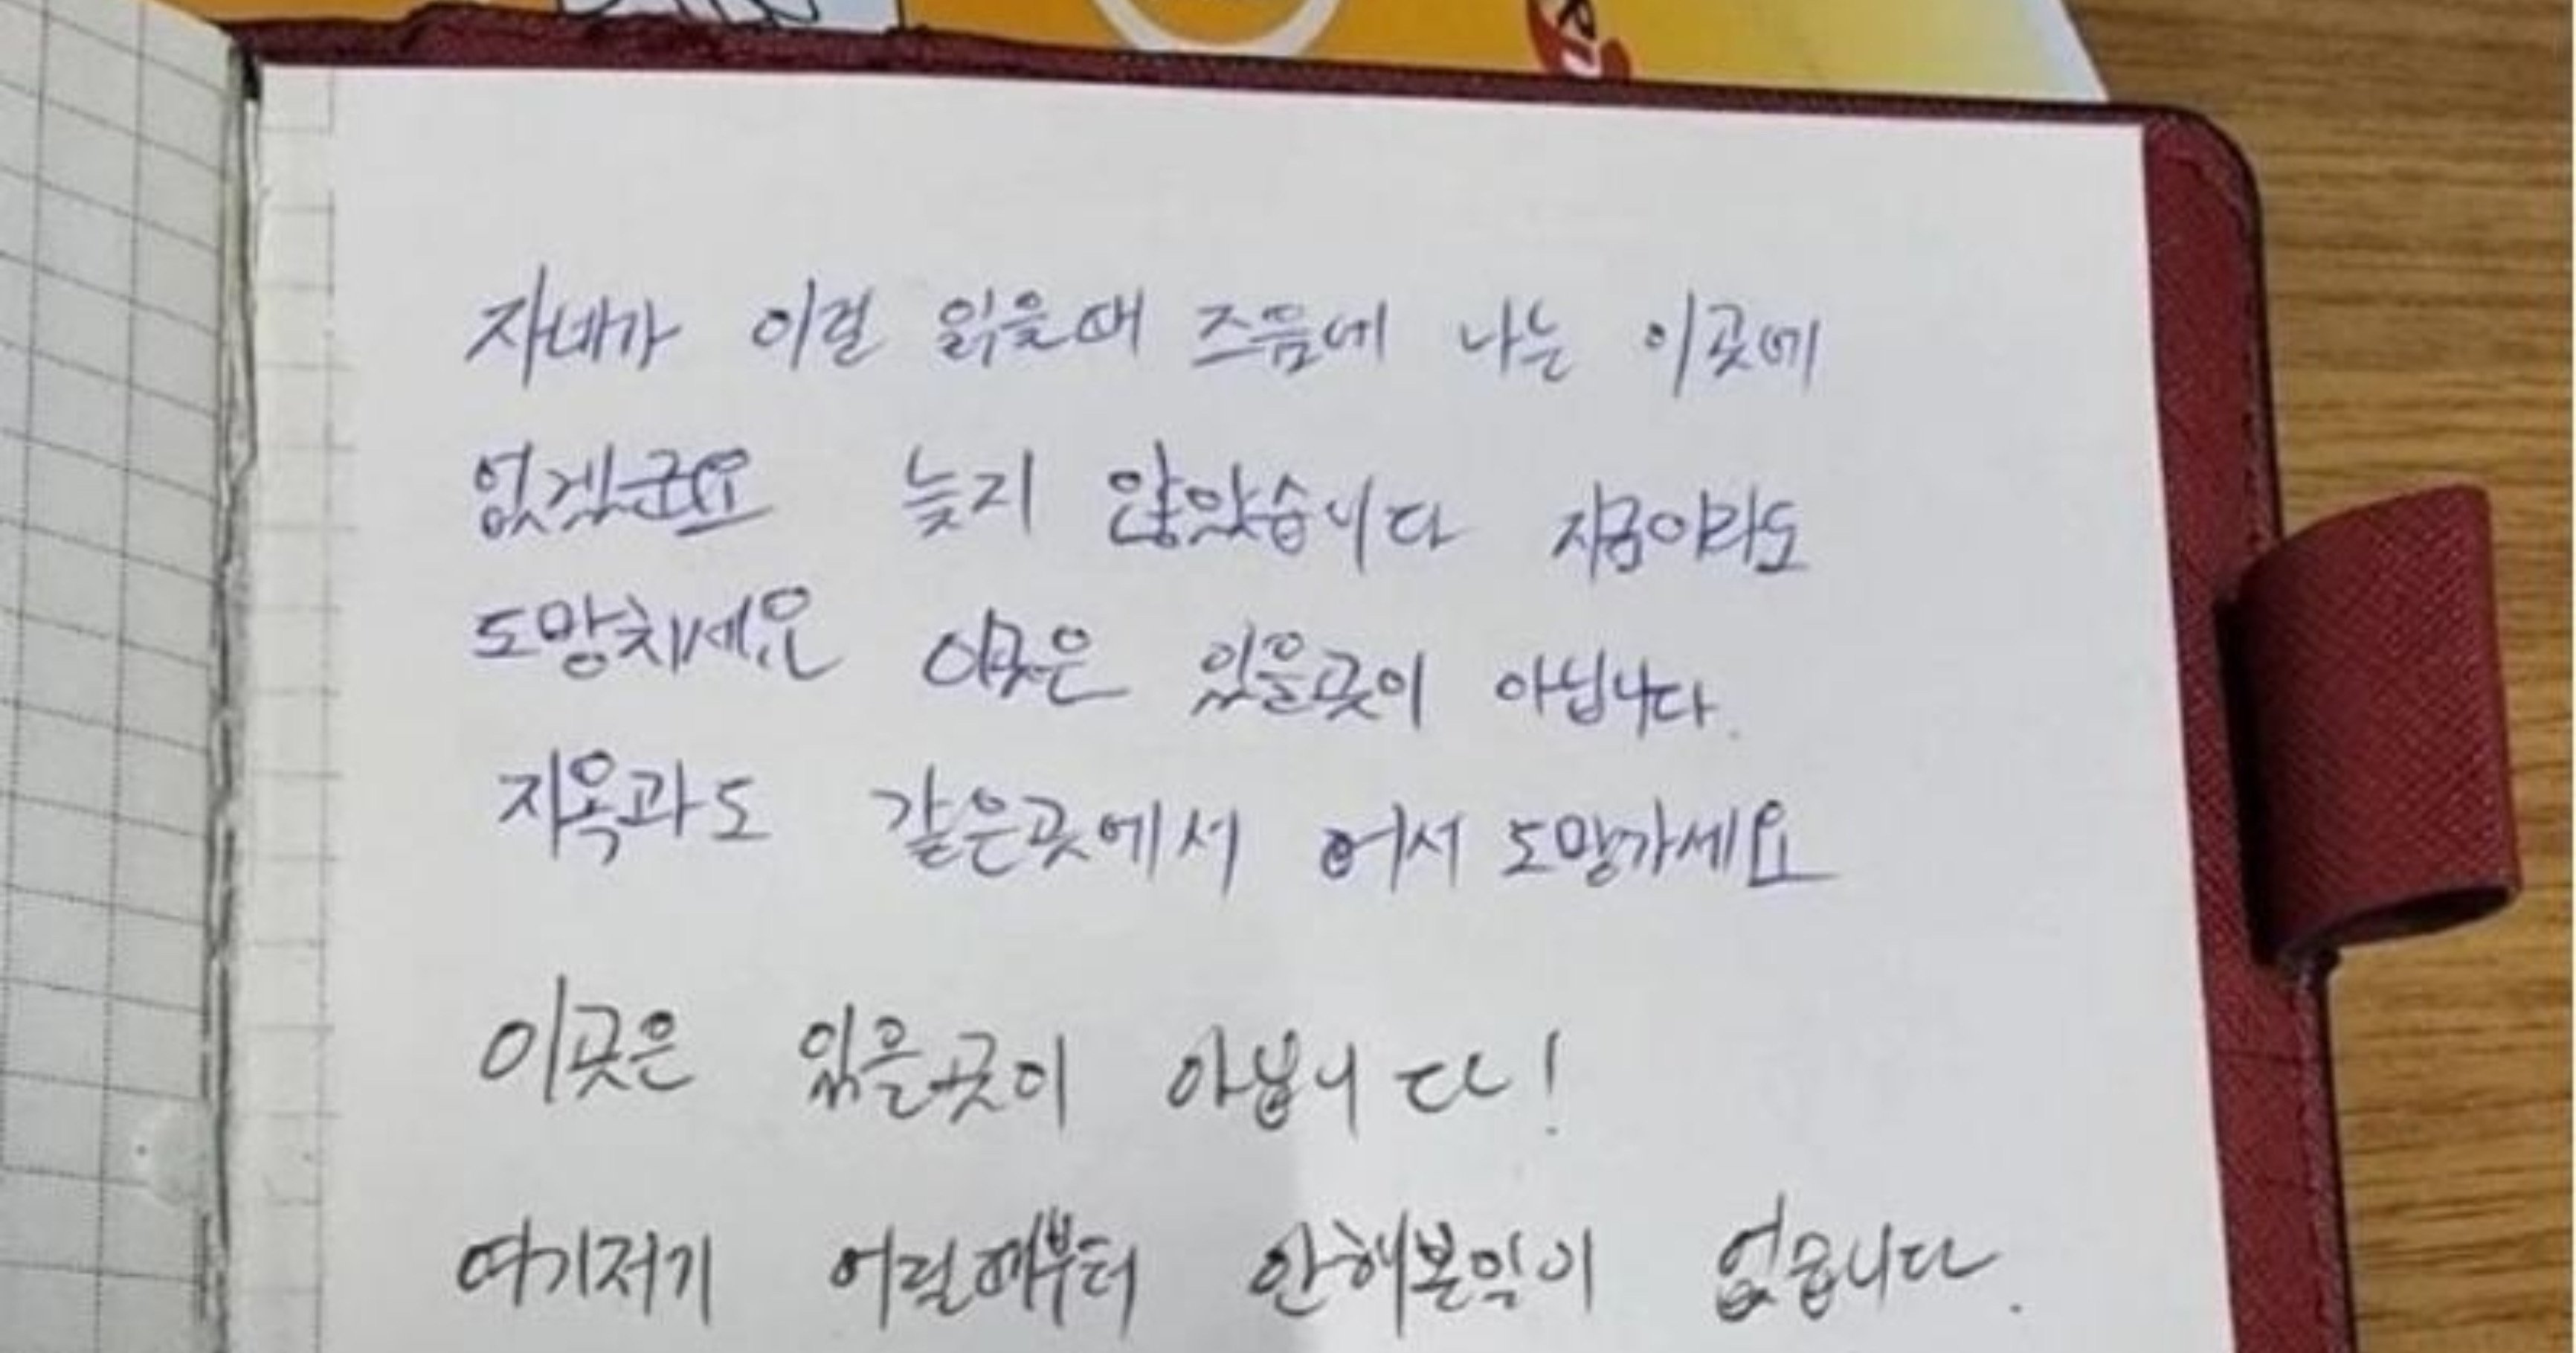 자네가 이걸 읽을때 즈음에 나는 이곳에
없겠군요 늦지 않았습니다 지금이라도
도망치세요 이곳은 있을곳이 아닙니다.
지옥과도 같은곳에서 어서 도망가세요
이곳은 있을곳이 아닙니다!
여기저기 어릴때부터 안해본일이 없습니다.